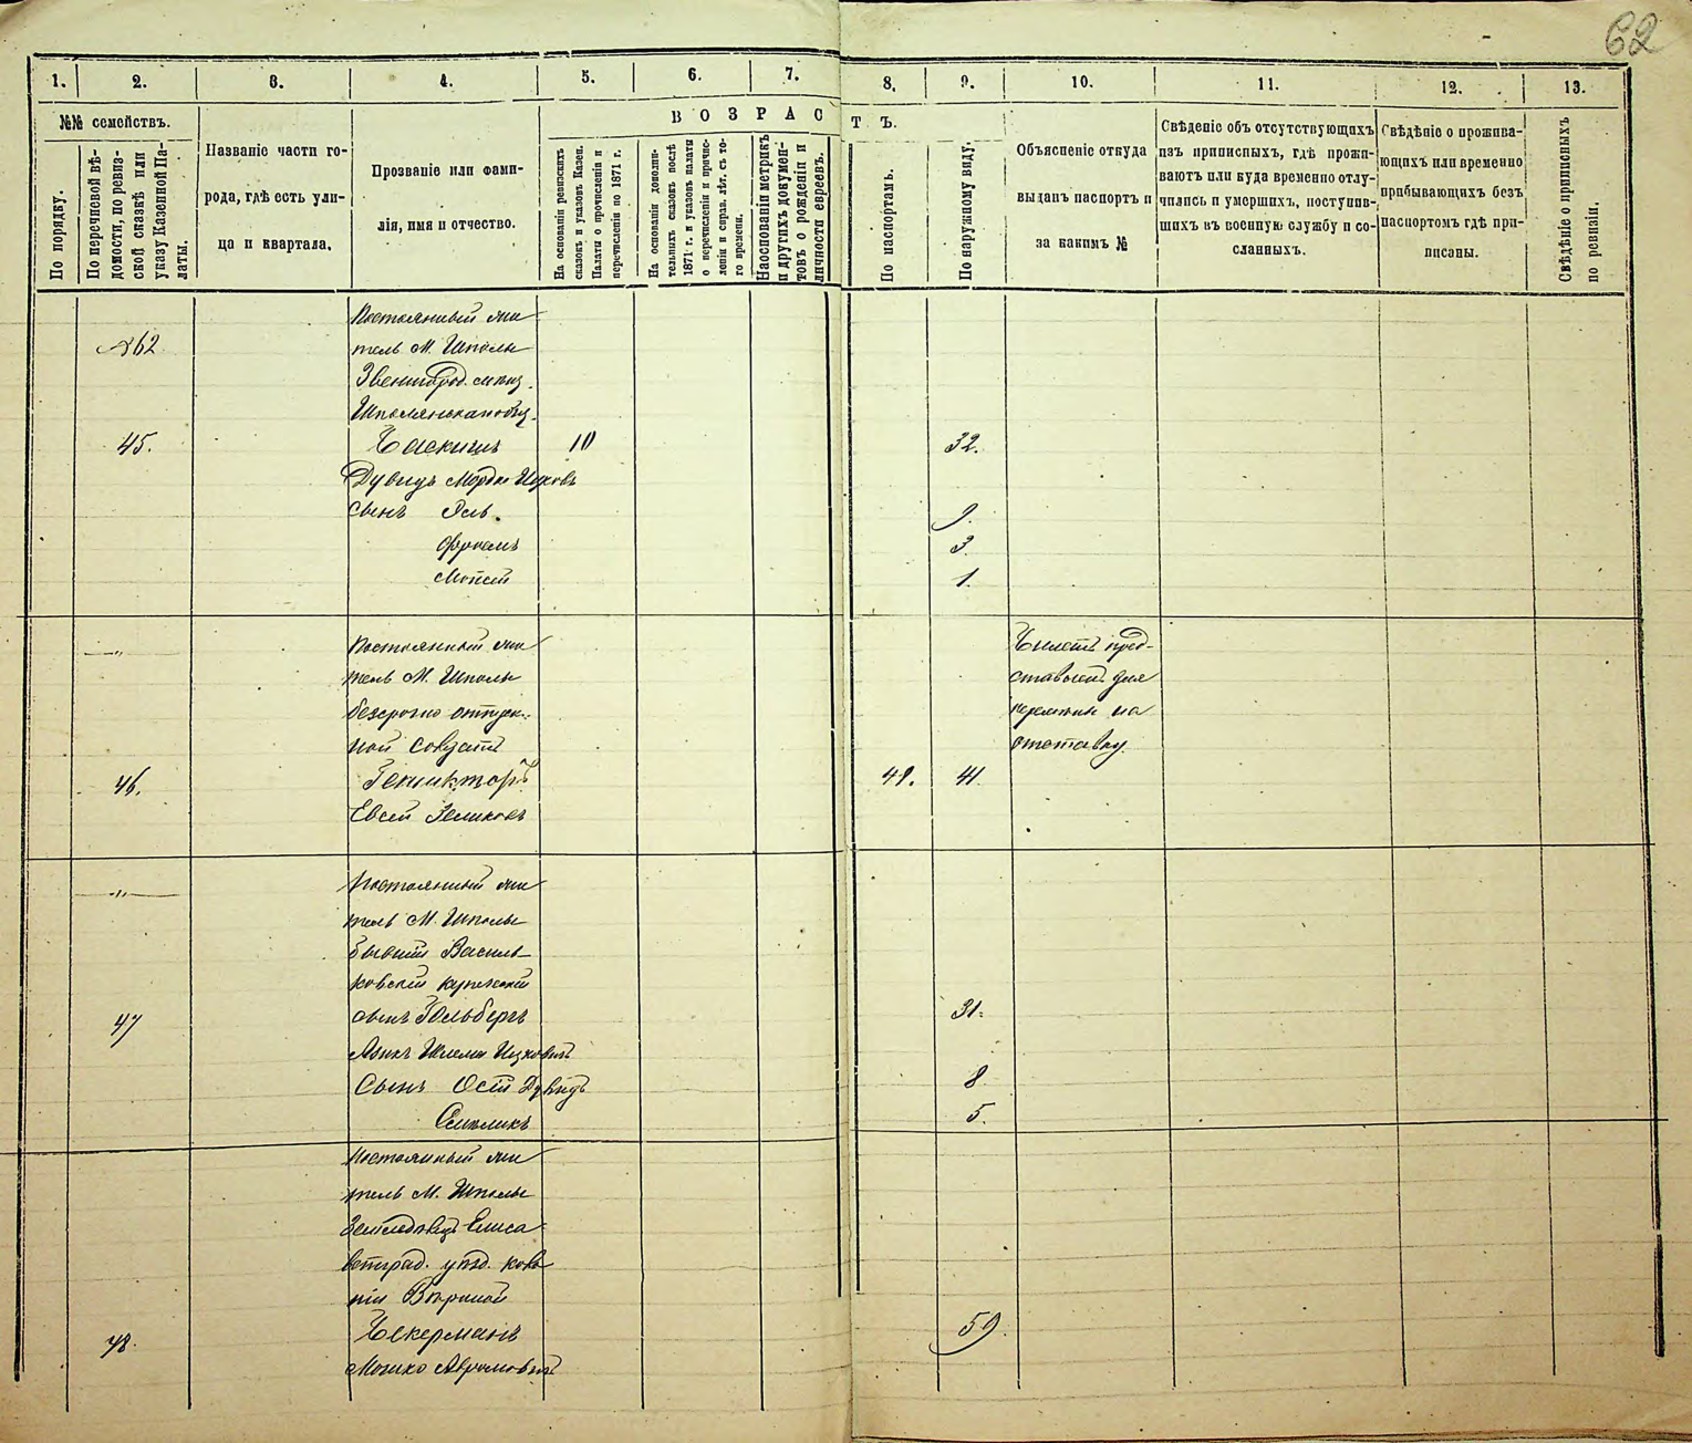 62
1. 2. 3. 4. 5. 6. 7. 8. 9. 10. 11. 12. 13.
№№ семействъ.
По порядку.
По перечневой вѣ-
домости, по ревиз-
ской сказкѣ или
указу Казенной Па-
латы.
Названіе части го-
рода, гдѣ есть ули-
ца и квартала.
Прозваніе или фами-
лія, имя и отчество.
ВОЗРАСТЪ.
На основаніи ревизскихъ
сказокъ и указовъ Казен.
Палаты о причисленіи и
перечисленіи по 1871 г.
На основаніи дополни-
тельныхъ сказокъ послѣ
1871 г. и указовъ палаты
о перечисленіи и причис-
леніи и справ. лѣт. съ то-
го времени.
Наоснованіи метрикъ
и другихъ докумен-
товъ о рожденіи и
личности евреевъ.
По паспортамъ.
По наружному виду.
Объясненіе откуда
выданъ паспортъ и
за какимъ №
Свѣденіе объ отсутствующихъ
изъ приписныхъ, гдѣ прожи-
ваютъ или куда временно отлу-
чились и умершихъ, поступив-
шихъ въ военную службу и со-
сланныхъ.
Свѣдѣніе о прожива-
ющихъ или временно
прибывающихъ безъ
паспортомъ гдѣ при-
писаны.
Свѣдѣніе о приписныхъ
по ревизіи.
Постоянный жи
62 тель М. Шполы
Звенигород. мѣщ.
45. 10 32.
Дувидъ Мордко Ицковъ
сынъ 9.
Фроимъ 3.
Мойсей 1.
Постоянный жи Билетъ пред-
тель М. Шполы ставленъ для
безсрочно отпуск- перемѣны на
ной солдатъ отставку.
46. 49. 41.
Евсей Зеликовъ
Постоянный жи
тель М. Шполы
бывшій Василь-
ковскій купеческій
47 сынъ Гольбергъ 31.
Шлема Ицковичъ
Сынъ Дувидъ 8
5.
Постоянный жи
тель М. Шполы
Земледѣлецъ Елиса
ветград. уѣзд. коло
ніи
48. 59.
Мошко Аврамовичъ